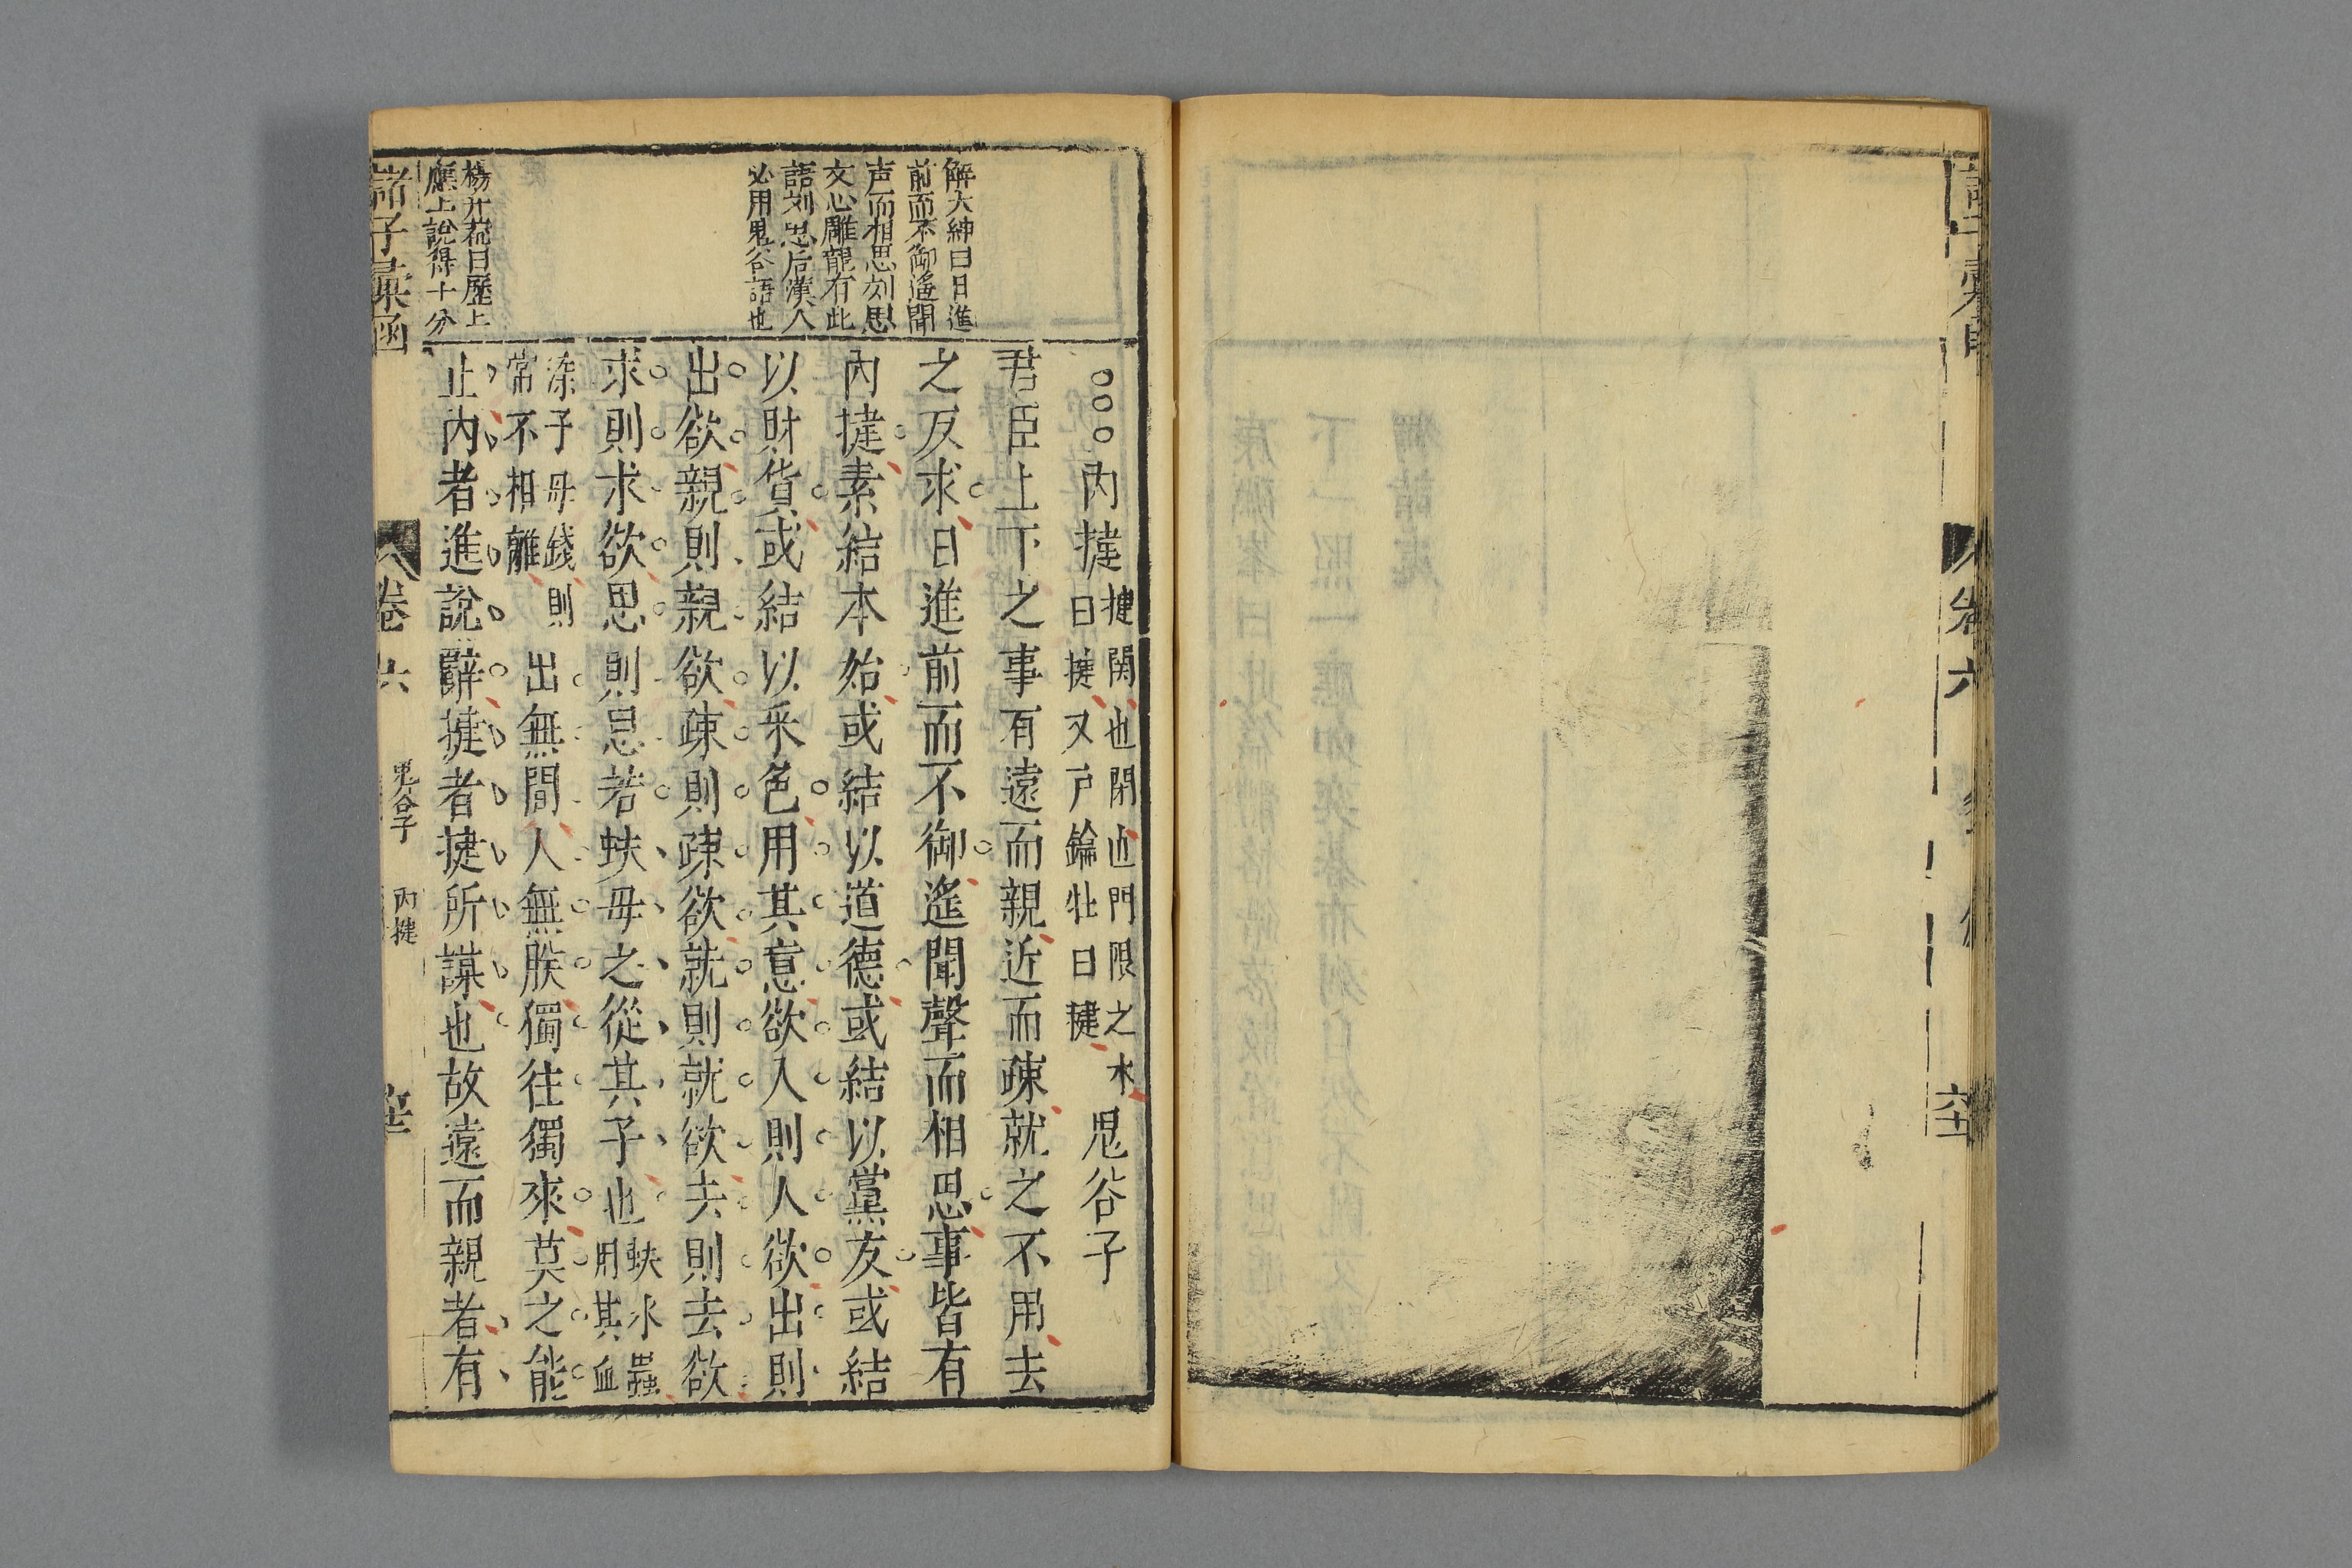 卷六
解大紳曰日進
前而不御遙聞
声而相思刘思
文心雕龍有此
語刘思后漢人
必用鬼谷語也
楊升菴曰歷上
應上說得十分
內揵揵関也閉也門限之木曰揵又戶鑰牡曰揵 鬼谷子
君臣上下之事有遠而親近而疎就之不用去
之反求日進前而不御遙聞聲而相思事皆有
內揵素結本始或結以道德或結以黨友或結
以財貨或結以采色用其意欲入則人欲出則
出欲親則親欲疎則疎欲就則就欲去則去欲
求則求欲思則思若蚨母之從其子也蚨水蟲用其血
塗子母錢則常不相離出無間人無朕獨往獨來莫之能
止內者進說辭揵者揵所謀也故遠而親者有
諸子彙函
卷六
鬼谷子
內揵